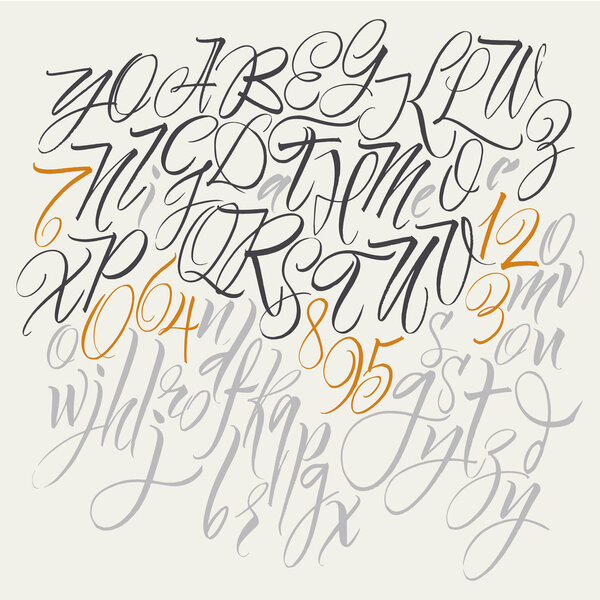 Y O A B E G K L W
N I j G D a T H M e O c e Z
7
X P Q R S T U W 1 2 0
0 6 4 n 8 3 m v
o 9 5 s o n
w j h l i r o d f k a p g s t
j y t z d
b r p g x y